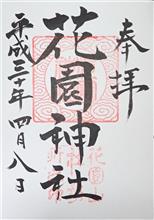 奉拝
花園神社
平成三十年四月八日